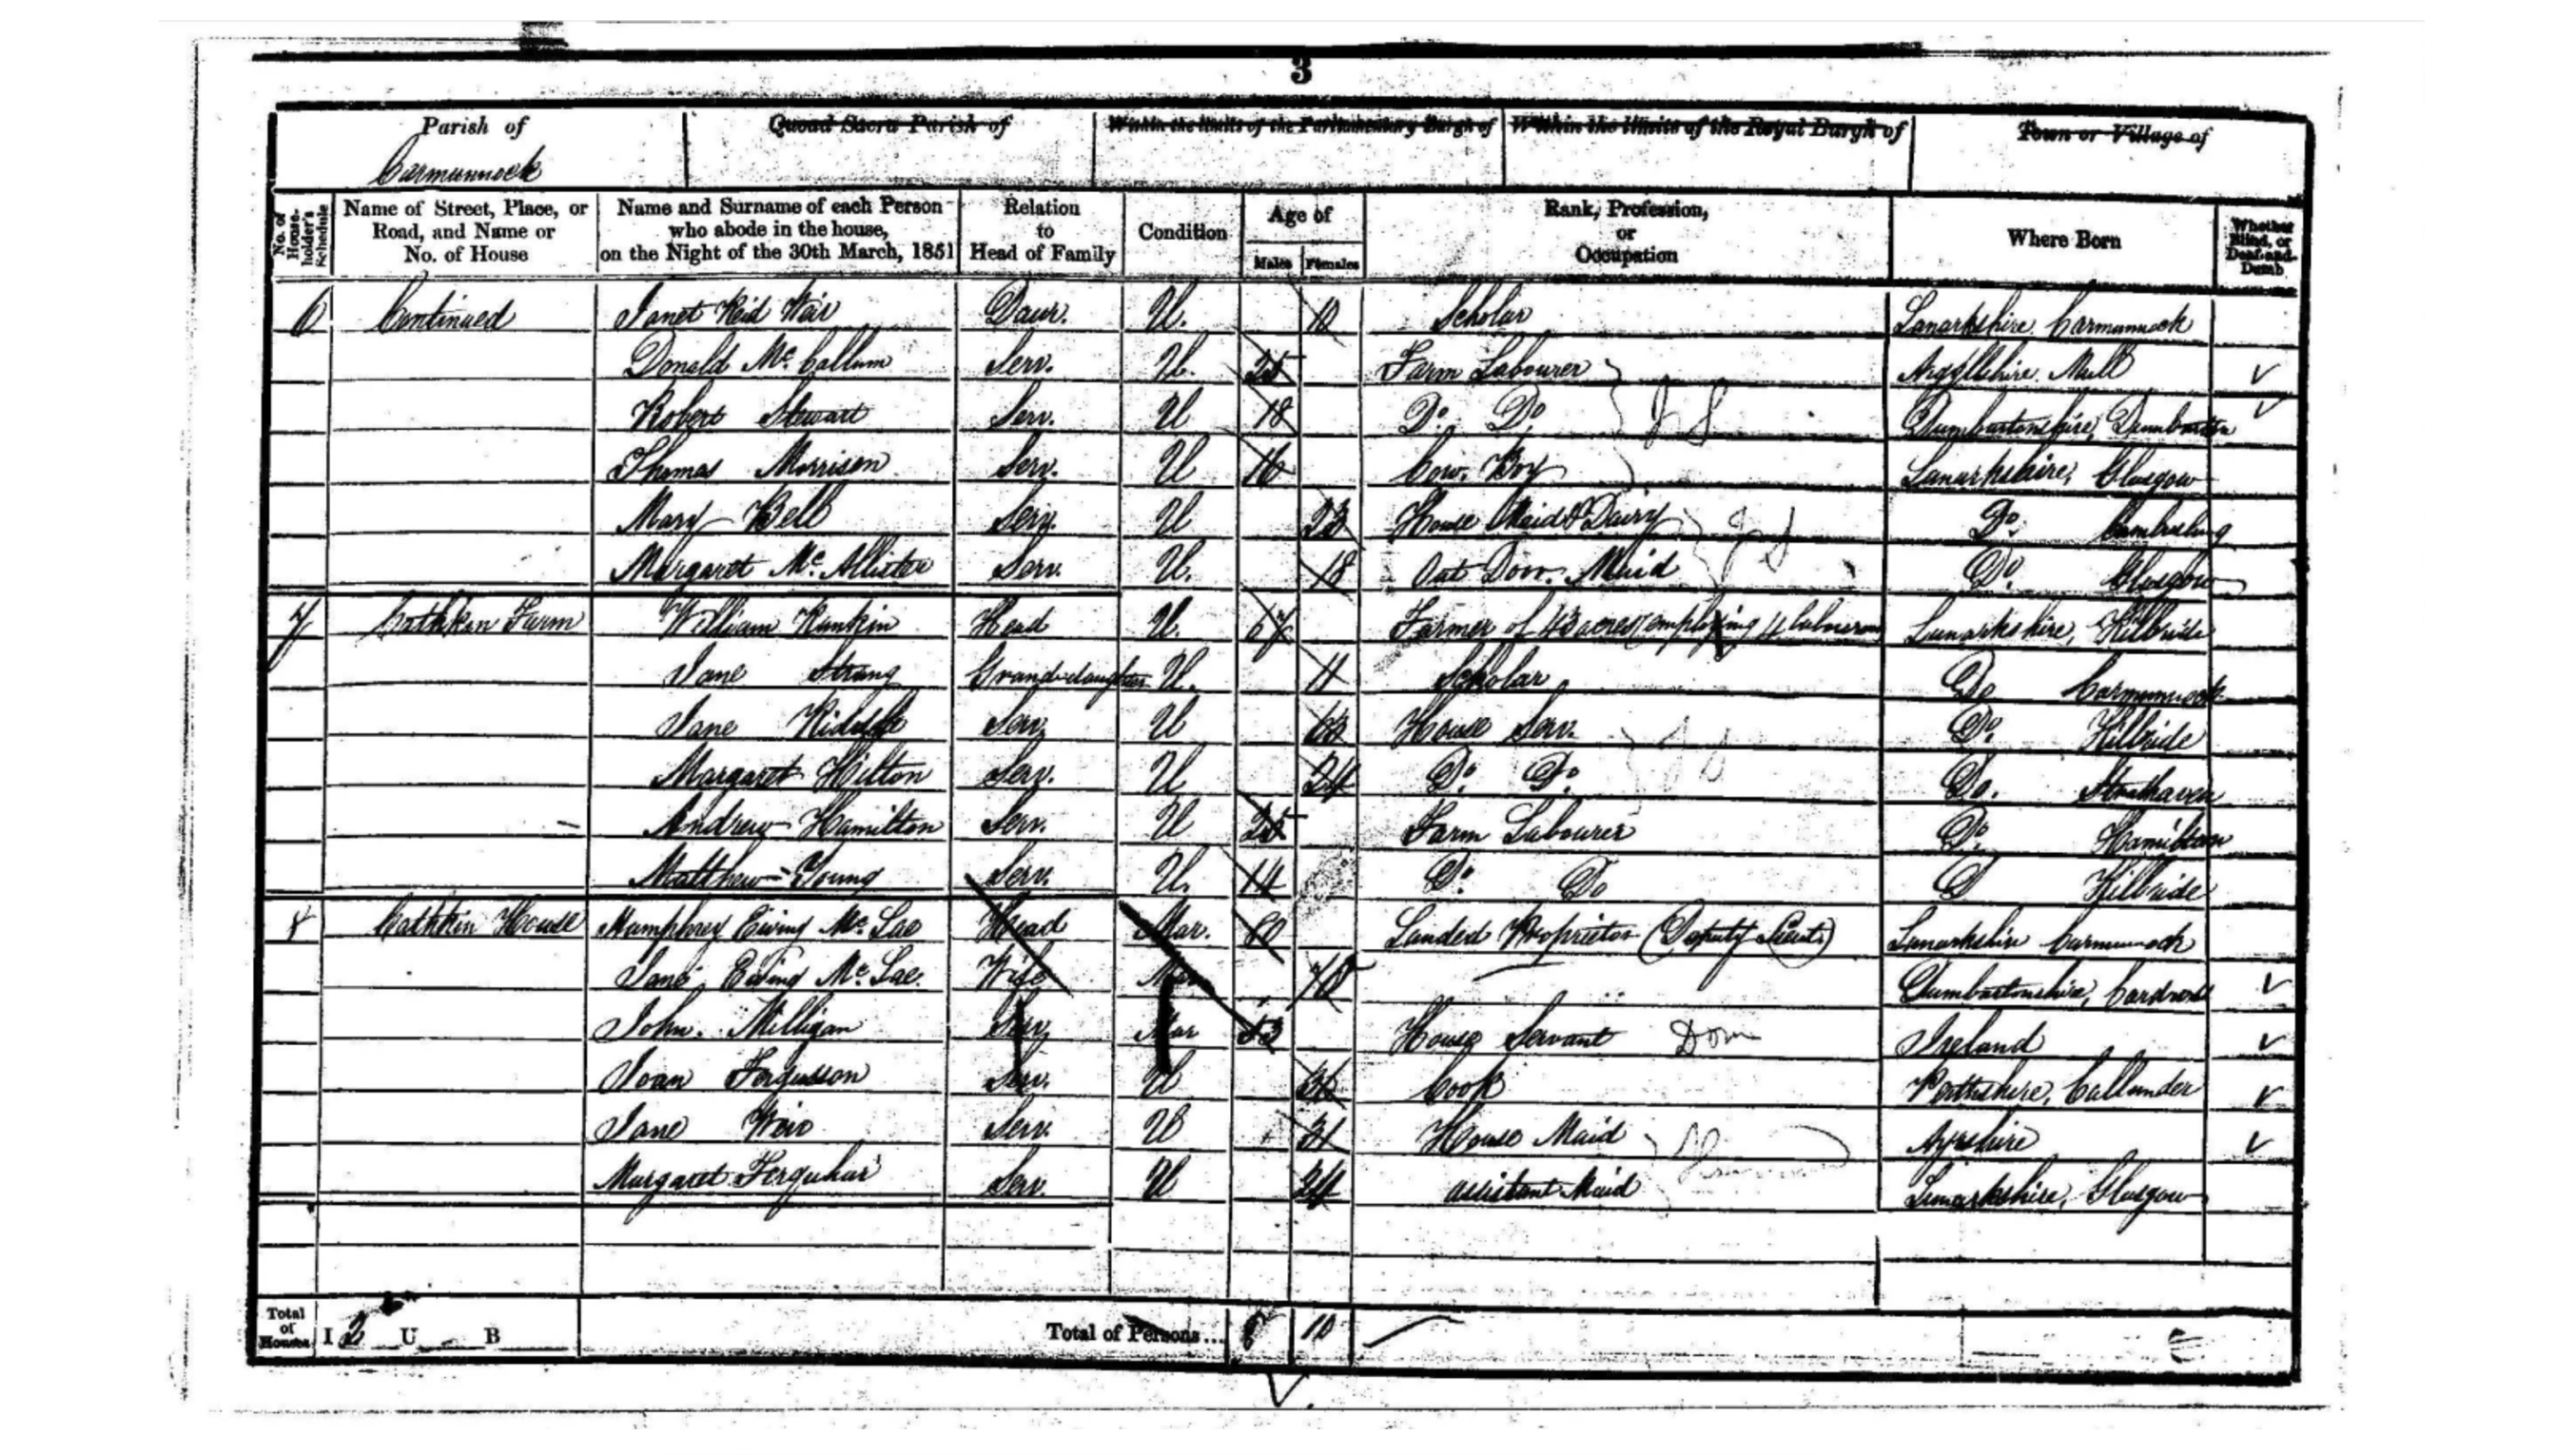 3
Parish of Quoad Sacra Parish of Within the limits of the Parliamentary Burgh of Within the limits of the Royal Burgh of Town or Village of
Carmunnock
No. of House-holder's Schedule Name of Street, Place, or Road, and Name or No. of House Name and Surname of each Person who abode in the house, on the Night of the 30th March, 1851 Relation to Head of Family Condition Age of Males Females Rank, Profession, or Occupation Where Born Whether Blind, or Deaf-and-Dumb
6 Continued Janet Reid Weir Daur. U. 10 Scholar Lanarkshire. Carmunnock
Donald Mc. Callum Serv. U. 25 Farm Labourer Argyllshire. Mull
Robert Stewart Serv. U 18 Do. Do. Dumbartonshire, Dumbarton
Thomas Morrison Serv. U 16 Cow. Boy Lanarkshire, Glasgow
Mary Bell Serv. U 23 House Maid & Dairy Do. Cambuslang
Margaret Mc. Allister Serv. U. 18 Out Door. Maid Do. Glasgow
7 Cathkin Farm William Rankin Head U. 67 Farmer of acres employing 4 labourers Lanarkshire, Kilbride
Jane Strang Grand-daughter U. 11 Scholar Do Carmunnock
Jane Serv. U House Serv. Do. Kilbride
Margaret Hilton Serv. U 24 Do. Do. Do. Strathaven
Andrew Hamilton Serv. U 25 Farm Labourer Do. Hamilton
Matthew Young Serv. U. 14 Do. Do D Kilbride
8 Cathkin House Humphrey Ewing Mc. Lae Head Mar. 80 Landed Proprietor (Deputy Lieut.) Lanarkshire Carmunnock
Jane Ewing Mc. Lae. Wife Mar 78 Dumbartonshire, Cardross
John. Milligan Serv. Mar 53 House Servant Dom Ireland
Joan Fergusson Serv. U Cook Perthshire, Callander
Jane Weir Serv. U 31 House Maid Ayrshire
Margaret Ferquhar Serv. U 24 assistant Maid Lanarkshire, Glasgow
Total of Houses I 2 U B Total of Persons... 8 10